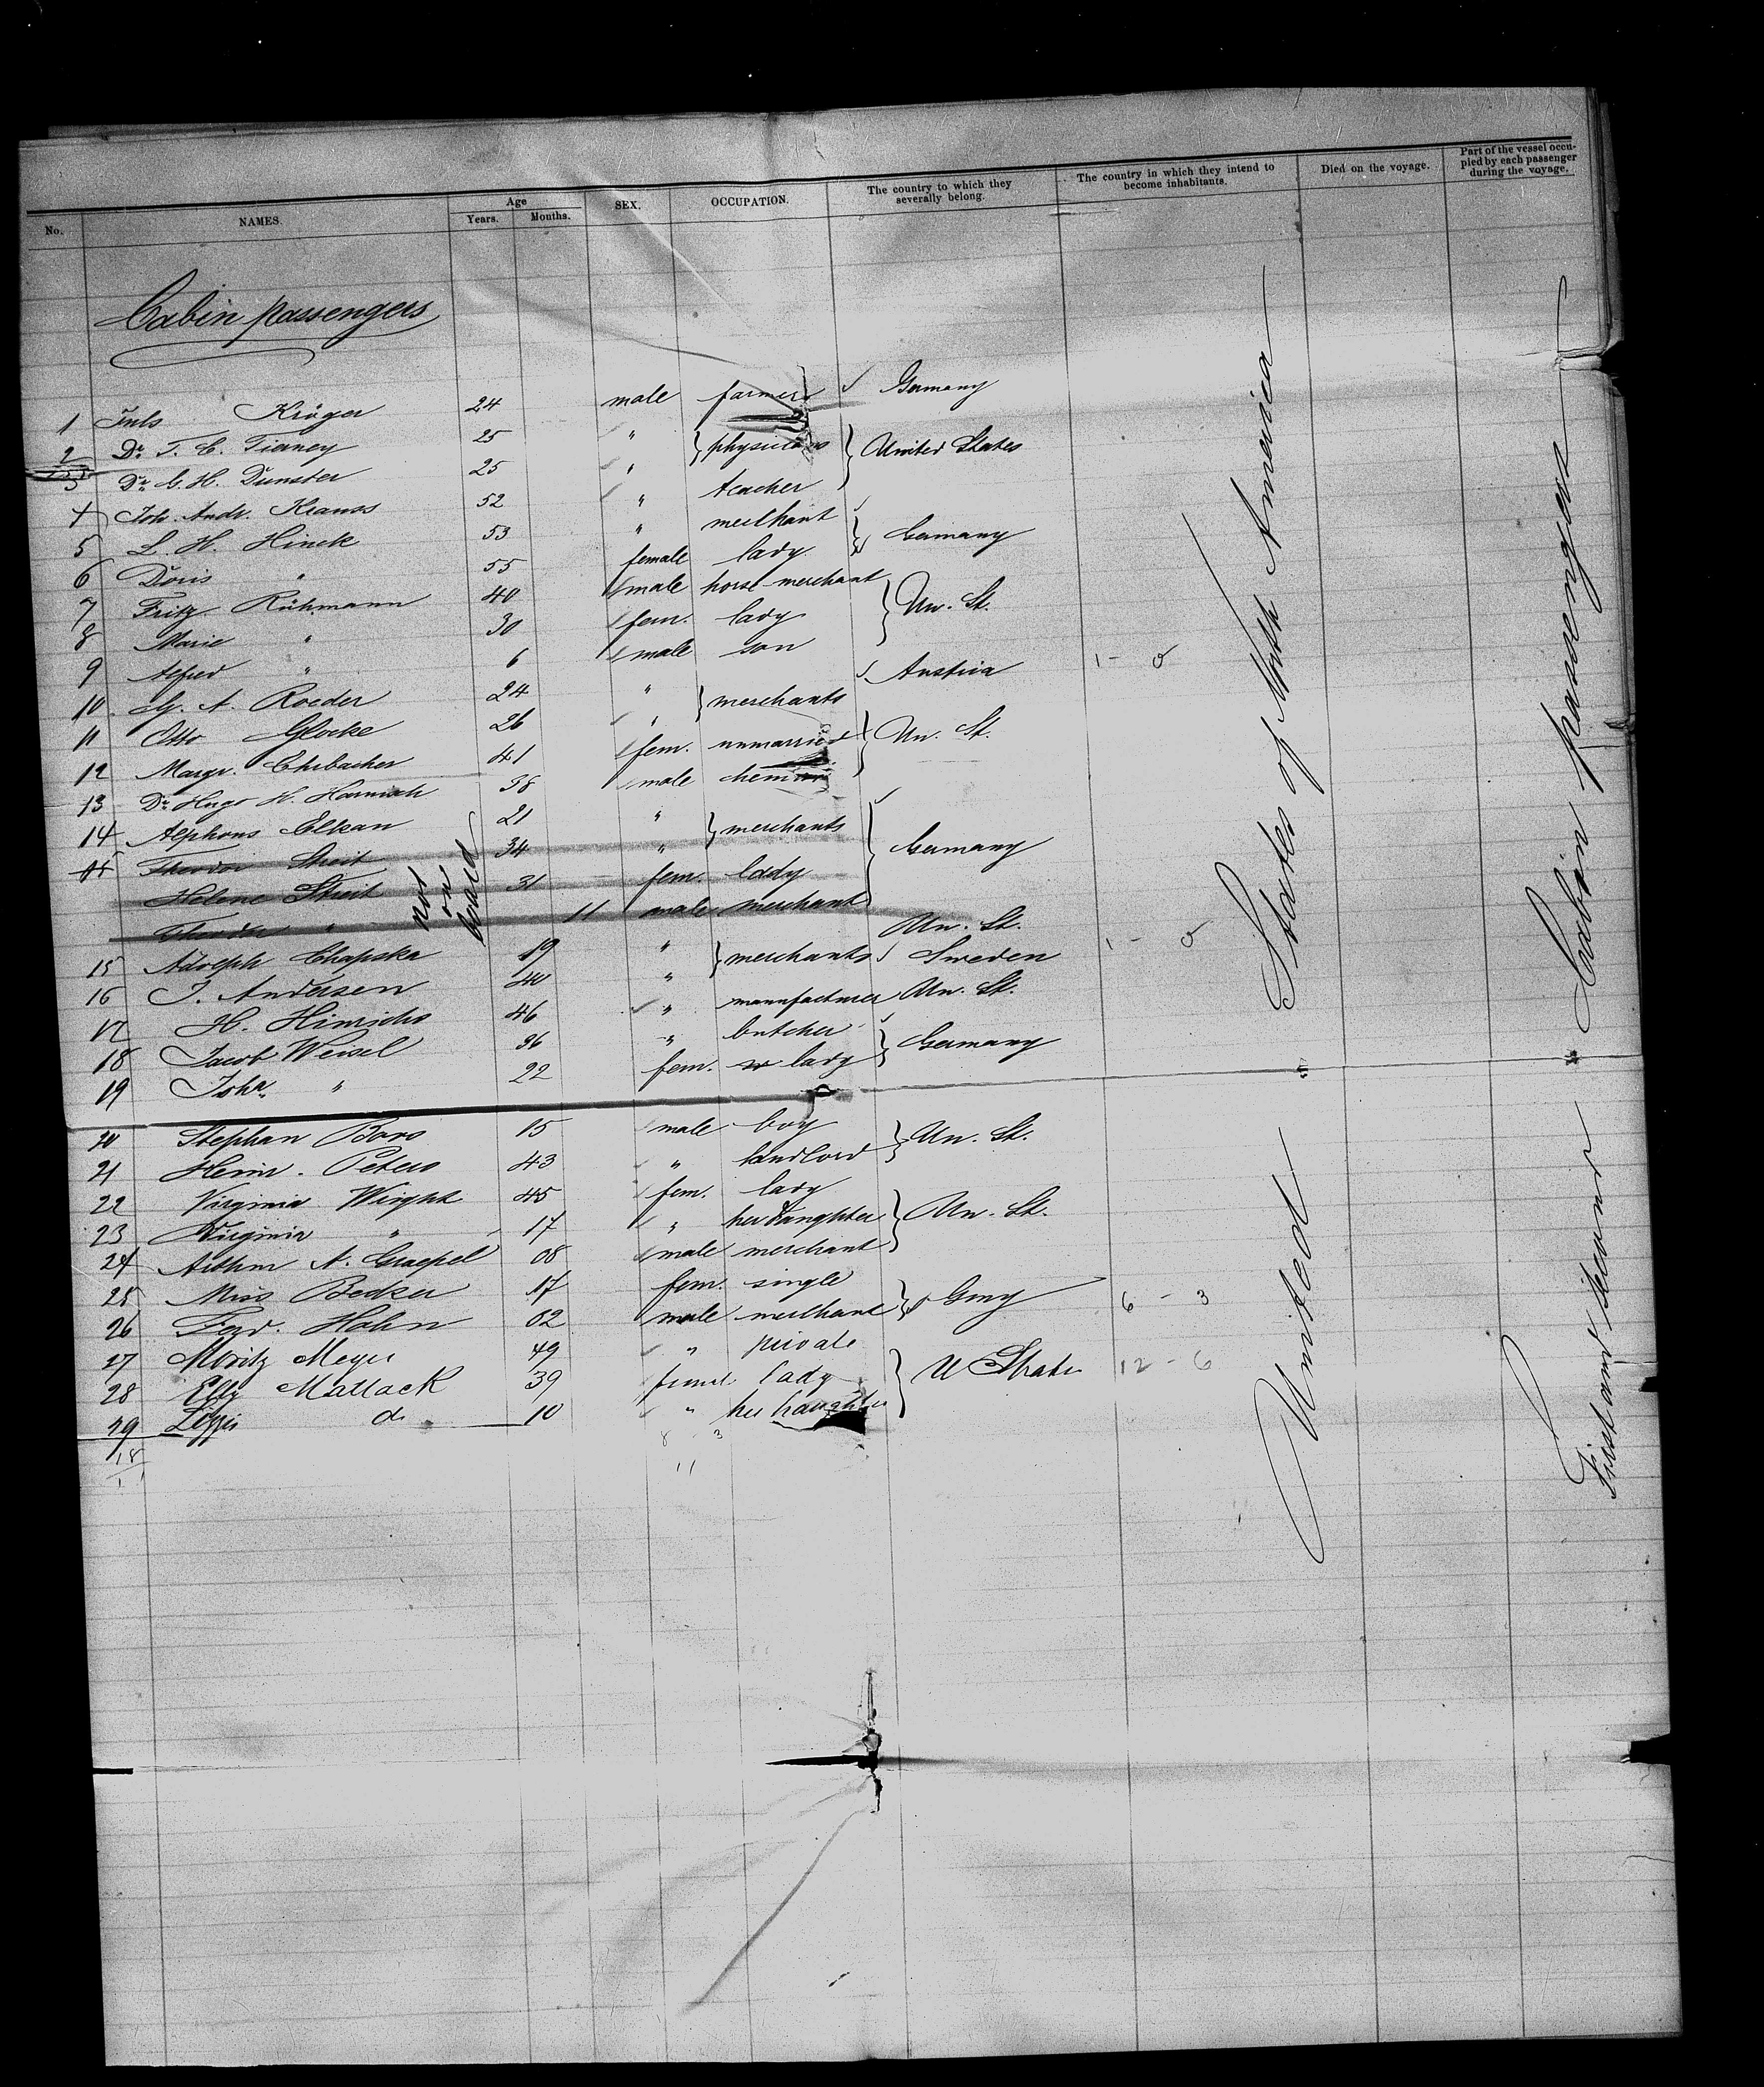 No. NAMES. Age Years. Months. SEX. OCCUPATION. The country to which they severally belong. The country in which they intend to become inhabitants. Died on the voyage. Part of the vessel occupied by each passenger during the voyage.
Cabin passengers
1 Kröger 24 male farmer Germany
2 Dr. T. C. Tierney 25 " physicians United States
3 Dr. G. H. Dunster 25 "
4 Joh. Andr. Krauss 52 " teacher
5 L. H. Hinck 53 " merchant Germany
6 Doris " 55 female lady
7 Fritz Rühmann 40 male horse-merchant Un. St.
8 Marie " 30 fem. lady
9 Alfred " 6 male son
10 G. A. Roeder 24 " merchants Austria 1 - 0
11 Otto Glocke 26 " Un. St.
12 Margr. Ehrbacher 41 fem. unmarried
13 Dr. Hugo H. 38 male
14 Alphons Elkan 21 " merchants Germany
15 Theodor Streit 34 "
Helene Streit 31 fem. lady
Theodor " 11 male merchant
not on board
15 Adolph Chapska 19 " merchants Un. St.
16 J. Andersen 40 " Sweden 1 - 0
17 H. Hinrichs 46 " manufacturer Un. St.
18 Jacob Weisel 36 " butcher Germany
19 Joha. " 22 fem. lady
20 Stephan 15 male boy Un. St.
21 Heinr. Peters 43 " landlord
22 Virginia Wright 45 fem. lady Un. St.
23 Virginia " 17 " her daughter
24 Arthur A. Graepel male merchant
25 Miss Becker 17 fem. single Gmy 6 - 3
26 Ferd. Hahn male merchant
27 Moritz Meyer 49 " private U State 12 - 6
28 Elly Matlack 39 femal lady
29 Lizzie do. 10 " her daughter
18
8 3
11
United States of North America
Cabin passengers
First and Second